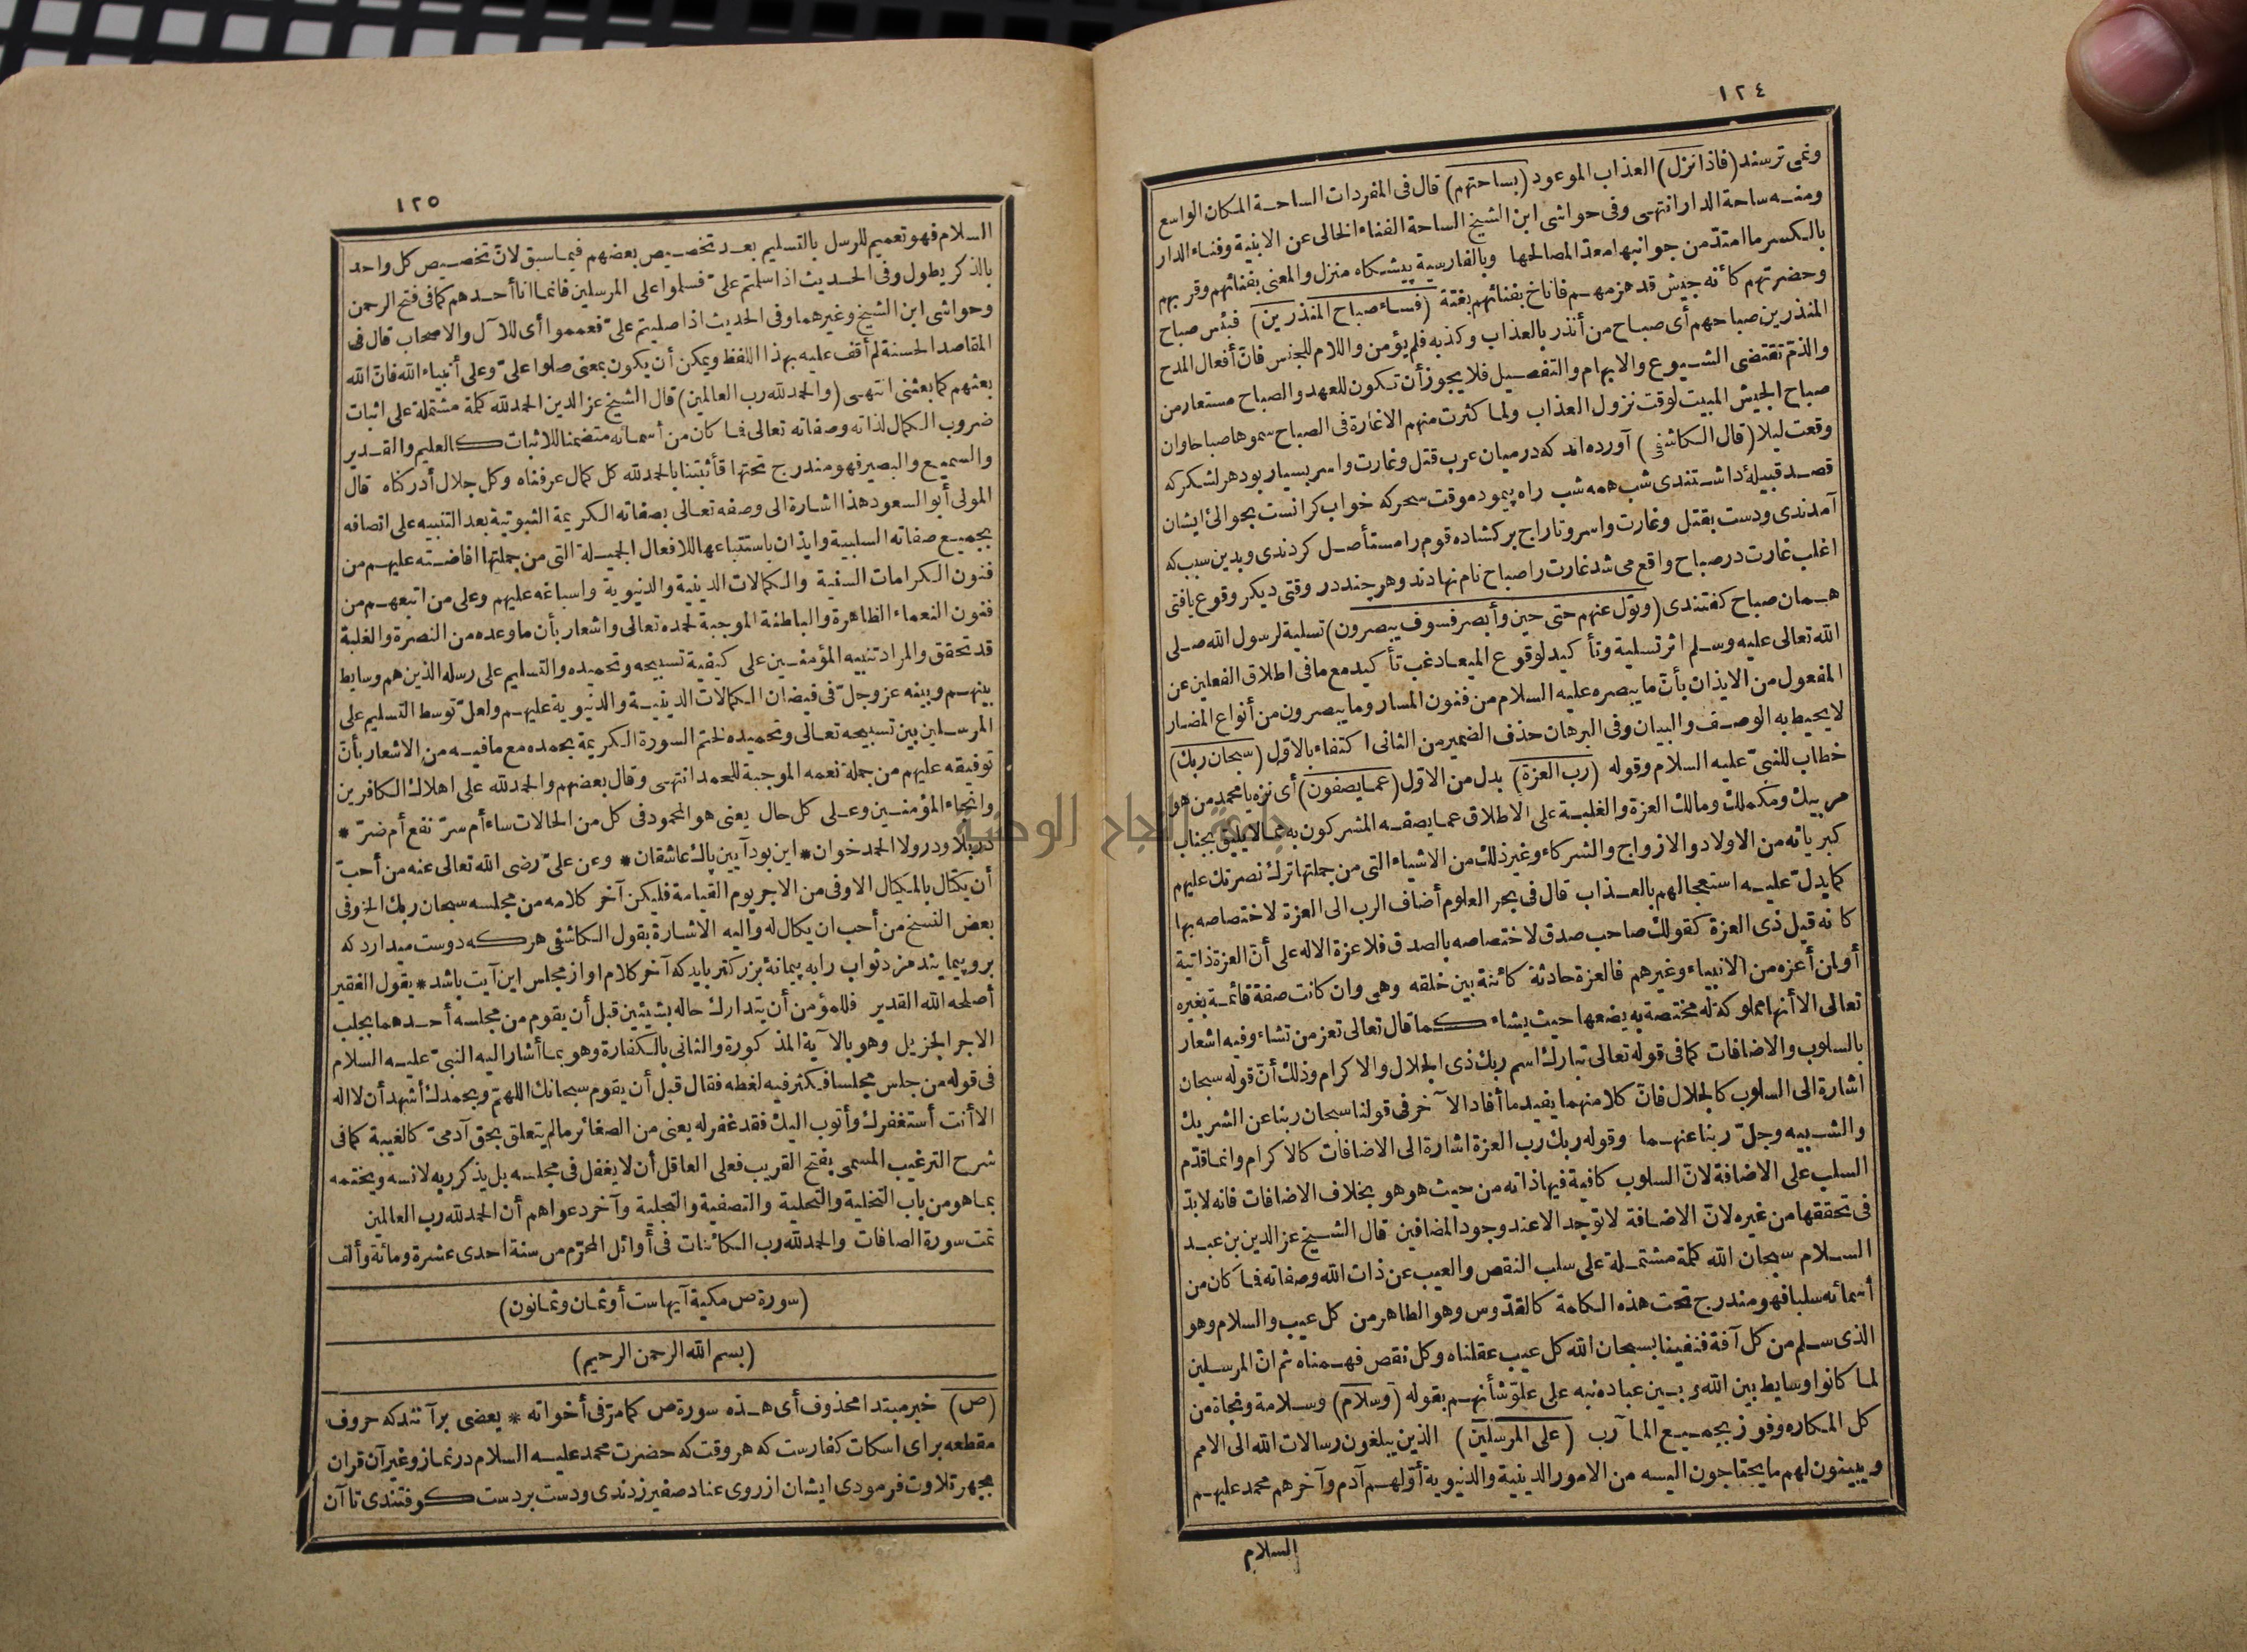 ١٢٤
ونمى ترسند (فاذا نزل) العذاب الموعود (بساحتهم) قال فى المفردات الساحة المكان الواسع
ومنه ساحة الدار انتهى وفى حواشى ابن الشيخ الساحة الفناء الخالى عن الابنية وفناء الدار
بالكسر ما امتد من جوانبها معدا لمصالحها وبالفارسية پيشكاه منزل والمعنى بفنائهم وقربهم
وحضرتهم كأنه جيش قد هزمهم فاناخ بفنائهم بغتة (فساء صباح المنذرين) فبئس صباح
المنذرين صباحهم أى صباح من أنذر بالعذاب وكذبه فلم يؤمن واللام للجنس فانّ أفعال المدح
والذمّ تقتضى الشيوع والابهام والتفصيل فلا يجوز أن تكون للعهد والصباح مستعار من
صباح الجيش المبيت لوقت نزول العذاب ولما كثرت منهم الاغارة فى الصباح سموها صباحا وان
وقعت ليلا (قال الكاشفى) آورده اند كه درميان عرب قتل وغارت واسر بسيار بود هر لشكر كه
قصد قبيلۀ داشتندى شب همه شب راه پيموده وقت سحر كه خواب كرانست بحوالئ ايشان
آمدندى ودست بقتل وغارت واسر وتاراج بركشاده قوم را مستأصل كردندى وبدين سبب كه
اغلب غارت در صباح واقع مى شد غارت را صباح نام نهادند وهر چند در وقتى ديكر وقوع يافتى
همان صباح كفتندى (وتول عنهم حتى حين وأبصر فسوف يبصرون) تسلية لرسول الله صلى
الله تعالى عليه وسلم اثر تسلية وتأكيد لوقوع الميعاد غب تأكيد مع ما فى اطلاق الفعلين عن
المفعول من الايذان بأنّ ما يبصره عليه السلام من فنون المسار وما يبصرون من أنواع المضار
لا يحيط به الوصف والبيان وفى البرهان حذف الضمير من الثانى اكتفاء بالاوّل (سبحان ربك)
خطاب للنبىّ عليه السلام وقوله (رب العزة) بدل من الاول (عما يصفون) أى نزه يا محمد من هو
مربيك ومكملك ومالك العزة والغلبة على الاطلاق عما يصفه المشركون به مما لا يليق بجناب
كبريائه من الاولاد والازواج والشركاء وغير ذلك من الاشياء التى من جملتها ترك نصرتك عليهم
كما يدلّ عليه استعجالهم بالعذاب قال فى بحر العلوم أضاف الرب الى العزة لاختصاصه بها
كانه قيل ذى العزة كقولك صاحب صدق لاختصاصه بالصدق فلا عزة الا له على أنّ العزة ذاتية
أو لمن أعزه من الانبياء وغيرهم فالعزة حادثة كائنة بين خلقه وهى وان كانت صفة قائمة بغيره
تعالى الا أنها مملوكة له مختصة به يضعها حيث يشاء كما قال تعالى تعز من تشاء وفيه اشعار
بالسلوب والاضافات كما فى قوله تعالى تبارك اسم ربك ذى الجلال والاكرام وذلك أنّ قوله سبحان
اشارة الى السلوب كالجلال فانّ كلا منهما يفيد ما أفاد الآخر فى قولنا سبحان ربنا عن الشريك
والشبيه وجلّ ربنا عنهما وقوله ربك رب العزة اشارة الى الاضافات كالاكرام وانما قدّم
السلب على الاضافة لانّ السلوب كافية فيها ذاته من حيث هو هو بخلاف الاضافات فانه لا بدّ
فى تحققها من غيره لانّ الاضافة لا توجد الا عند وجود المضافين قال الشيخ عز الدين بن عبد
السلام سبحان الله كلمة مشتملة على سلب النقص والعيب عن ذات الله وصفاته فما كان من
أسمائه سلبا فهو مندرج تحت هذه الكلمة كالقدّوس وهو الطاهر من كل عيب والسلام وهو
الذى سلم من كل آفة فنفينا بسبحان الله كل عيب عقلناه وكل نقص فهمناه ثم ان المرسلين
لما كانوا وسايط بين الله وبين عباده نبه على علوّ شأنهم بقوله (وسلام) وسلامة ونجاة من
كل المكاره وفوز بجميع المآرب (على المرسلين) الذين يبلغون رسالات الله الى الامم
ويبينون لهم ما يحتاجون اليه من الامور الدينية والدنيوية أوّلهم آدم وآخرهم محمد عليهم
السلام
١٢٥
السلام فهو تعميم للرسل بالتسليم بعد تخصيص بعضهم فيما سبق لانّ تخصيص كل واحد
بالذكر يطول وفى الحديث اذا سلتم علىّ فسلموا على المرسلين فانما انا أحدهم كما فى فتح الرحمن
وحواشى ابن الشيخ وغيرهما وفى الحديث اذا صليتم علىّ فعمموا أى للآل والاصحاب قال فى
المقاصد الحسنة لم أقف عليه بهذا اللفظ ويمكن أن يكون بمعنى صلوا علىّ وعلى أنبياء الله فانّ الله
بعثهم كما بعثنى انتهى (والحمد لله رب العالمين) قال الشيخ عز الدين الحمد لله كلمة مشتملة على اثبات
ضروب الكمال لذاته وصفاته تعالى فما كان من أسمائه متضمنا للاثبات كالعليم والقدير
والسميع والبصير فهو مندرج تحتها فأثبتنا بالحمد لله كل كمال عرفناه وكل جلال أدركناه قال
المولى أبو السعود هذا اشارة الى وصفه تعالى بصفاته الكريمة الثبوتية بعد التنبيه على اتصافه
بجميع صفاته السلبية وايذان باستتباعها للافعال الجميلة التى من جملتها افاضته عليهم من
فنون الكرامات السنية والكمالات الدينية والدنيوية واسباغه عليهم وعلى من اتبعهم من
فنون النعماء الظاهرة والباطنة الموجبة لحمده تعالى واشعار بأن ما وعده من النصرة والغلبة
قد تحقق والمراد تنبيه المؤمنين على كيفية تسبيحه وتحميده والتسليم على رسله الذين هم وسايط
بينهم وبينه عز وجلّ فى فيضان الكمالات الدينية والدنيوية عليهم ولعلّ توسط التسليم على
المرسلين بين تسبيحه تعالى وتحميده لختم السورة الكريمة بحمده مع ما فيه من الاشعار بأنّ
توفيقه عليهم من جملة نعمه الموجبة للحمد انتهى وقال بعضهم والحمد لله على اهلاك الكافرين
وانجاء المؤمنين وعلى كل حال يعنى هو المحمود فى كل من الحالات ساء أم سرّ نفع أم ضرّ *
در بلا ودر ولا الحمد خوان * اين بود آيين پاك عاشقان * وعن علىّ رضى الله تعالى عنه من أحبّ
أن يكتال بالمكيال الاوفى من الاجر يوم القيامة فليكن آخر كلامه من مجلسه سبحان ربك الخ وفى
بعض النسخ من أحب ان يكال له واليه الاشارة بقول الكاشفى هر كه دوست ميدارد كه
برو پيمايند مزد ثواب را به پيمانۀ بزركتر بايد كه آخر كلام او از مجلس اين آيت باشد * يقول الفقير
أصلحه الله القدير فللمؤمن أن يتدارك حاله بشيئين قبل أن يقوم من مجلسه أحدهما يجلب
الاجر الجزيل وهو بالآية المذكورة والثانى بالكفارة وهو بما أشار اليه النبىّ عليه السلام
فى قوله من جلس مجلسا فيكثر فيه لغطه فقال قبل أن يقوم سبحانك اللهمّ وبحمدك أشهد أن لا اله
الا أنت أستغفرك وأتوب اليك فقد غفر له يعنى من الصغائر ما لم يتعلق بحق آدمىّ كالغيبة كما فى
شرح الترغيب المسمى بفتح القريب فعلى العاقل أن لا يغفل فى مجلسه بل يذكر ربه لانسه ويختمه
بما هو من باب التخلية والتحلية والتصفية والتجلية وآخر دعواهم أن الحمد لله رب العالمين
تمت سورة الصافات والحمد لله رب الكائنات فى أوائل المحرّم من سنة احدى عشرة ومائة وألف
(سورة ص مكية آيها ست أو ثمان وثمانون)
(بسم الله الرحمن الرحيم)
(ص) خبر مبتدا محذوف أى هذه سورة ص كما مرّ فى أخواته * يعضى برآنند كه حروف
مقطعه براى اسكات كفارست كه هر وقت كه حضرت محمد عليه السلام در نماز وغير آن قران
بجهر تلاوت فرمودى ايشان از روى عناد صفير زدندى ودست بر دست كوفتندى تا آن
جامعة النجاح الوطنية